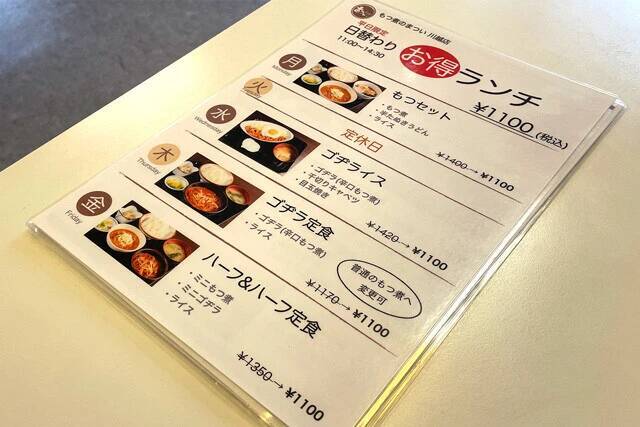 もつ煮のまつい 川越店
平日限定
日替わり
11:00〜14:30
お得ランチ
¥1100(税込)
月
Monday
もつセット
・もつ煮
・半たぬきうどん
・ライス
¥1400→¥1100
火
定休日
水
Wednesday
ゴヂライス
・ゴヂラ(辛口もつ煮)
・千切りキャベツ
・目玉焼き
¥1420→¥1100
木
Thursday
ゴヂラ定食
・ゴヂラ(辛口もつ煮)
・ライス
普通のもつ煮へ
変更可
¥1170→¥1100
金
Friday
ハーフ&ハーフ定食
・ミニもつ煮
・ミニゴヂラ
・ライス
¥1350→¥1100